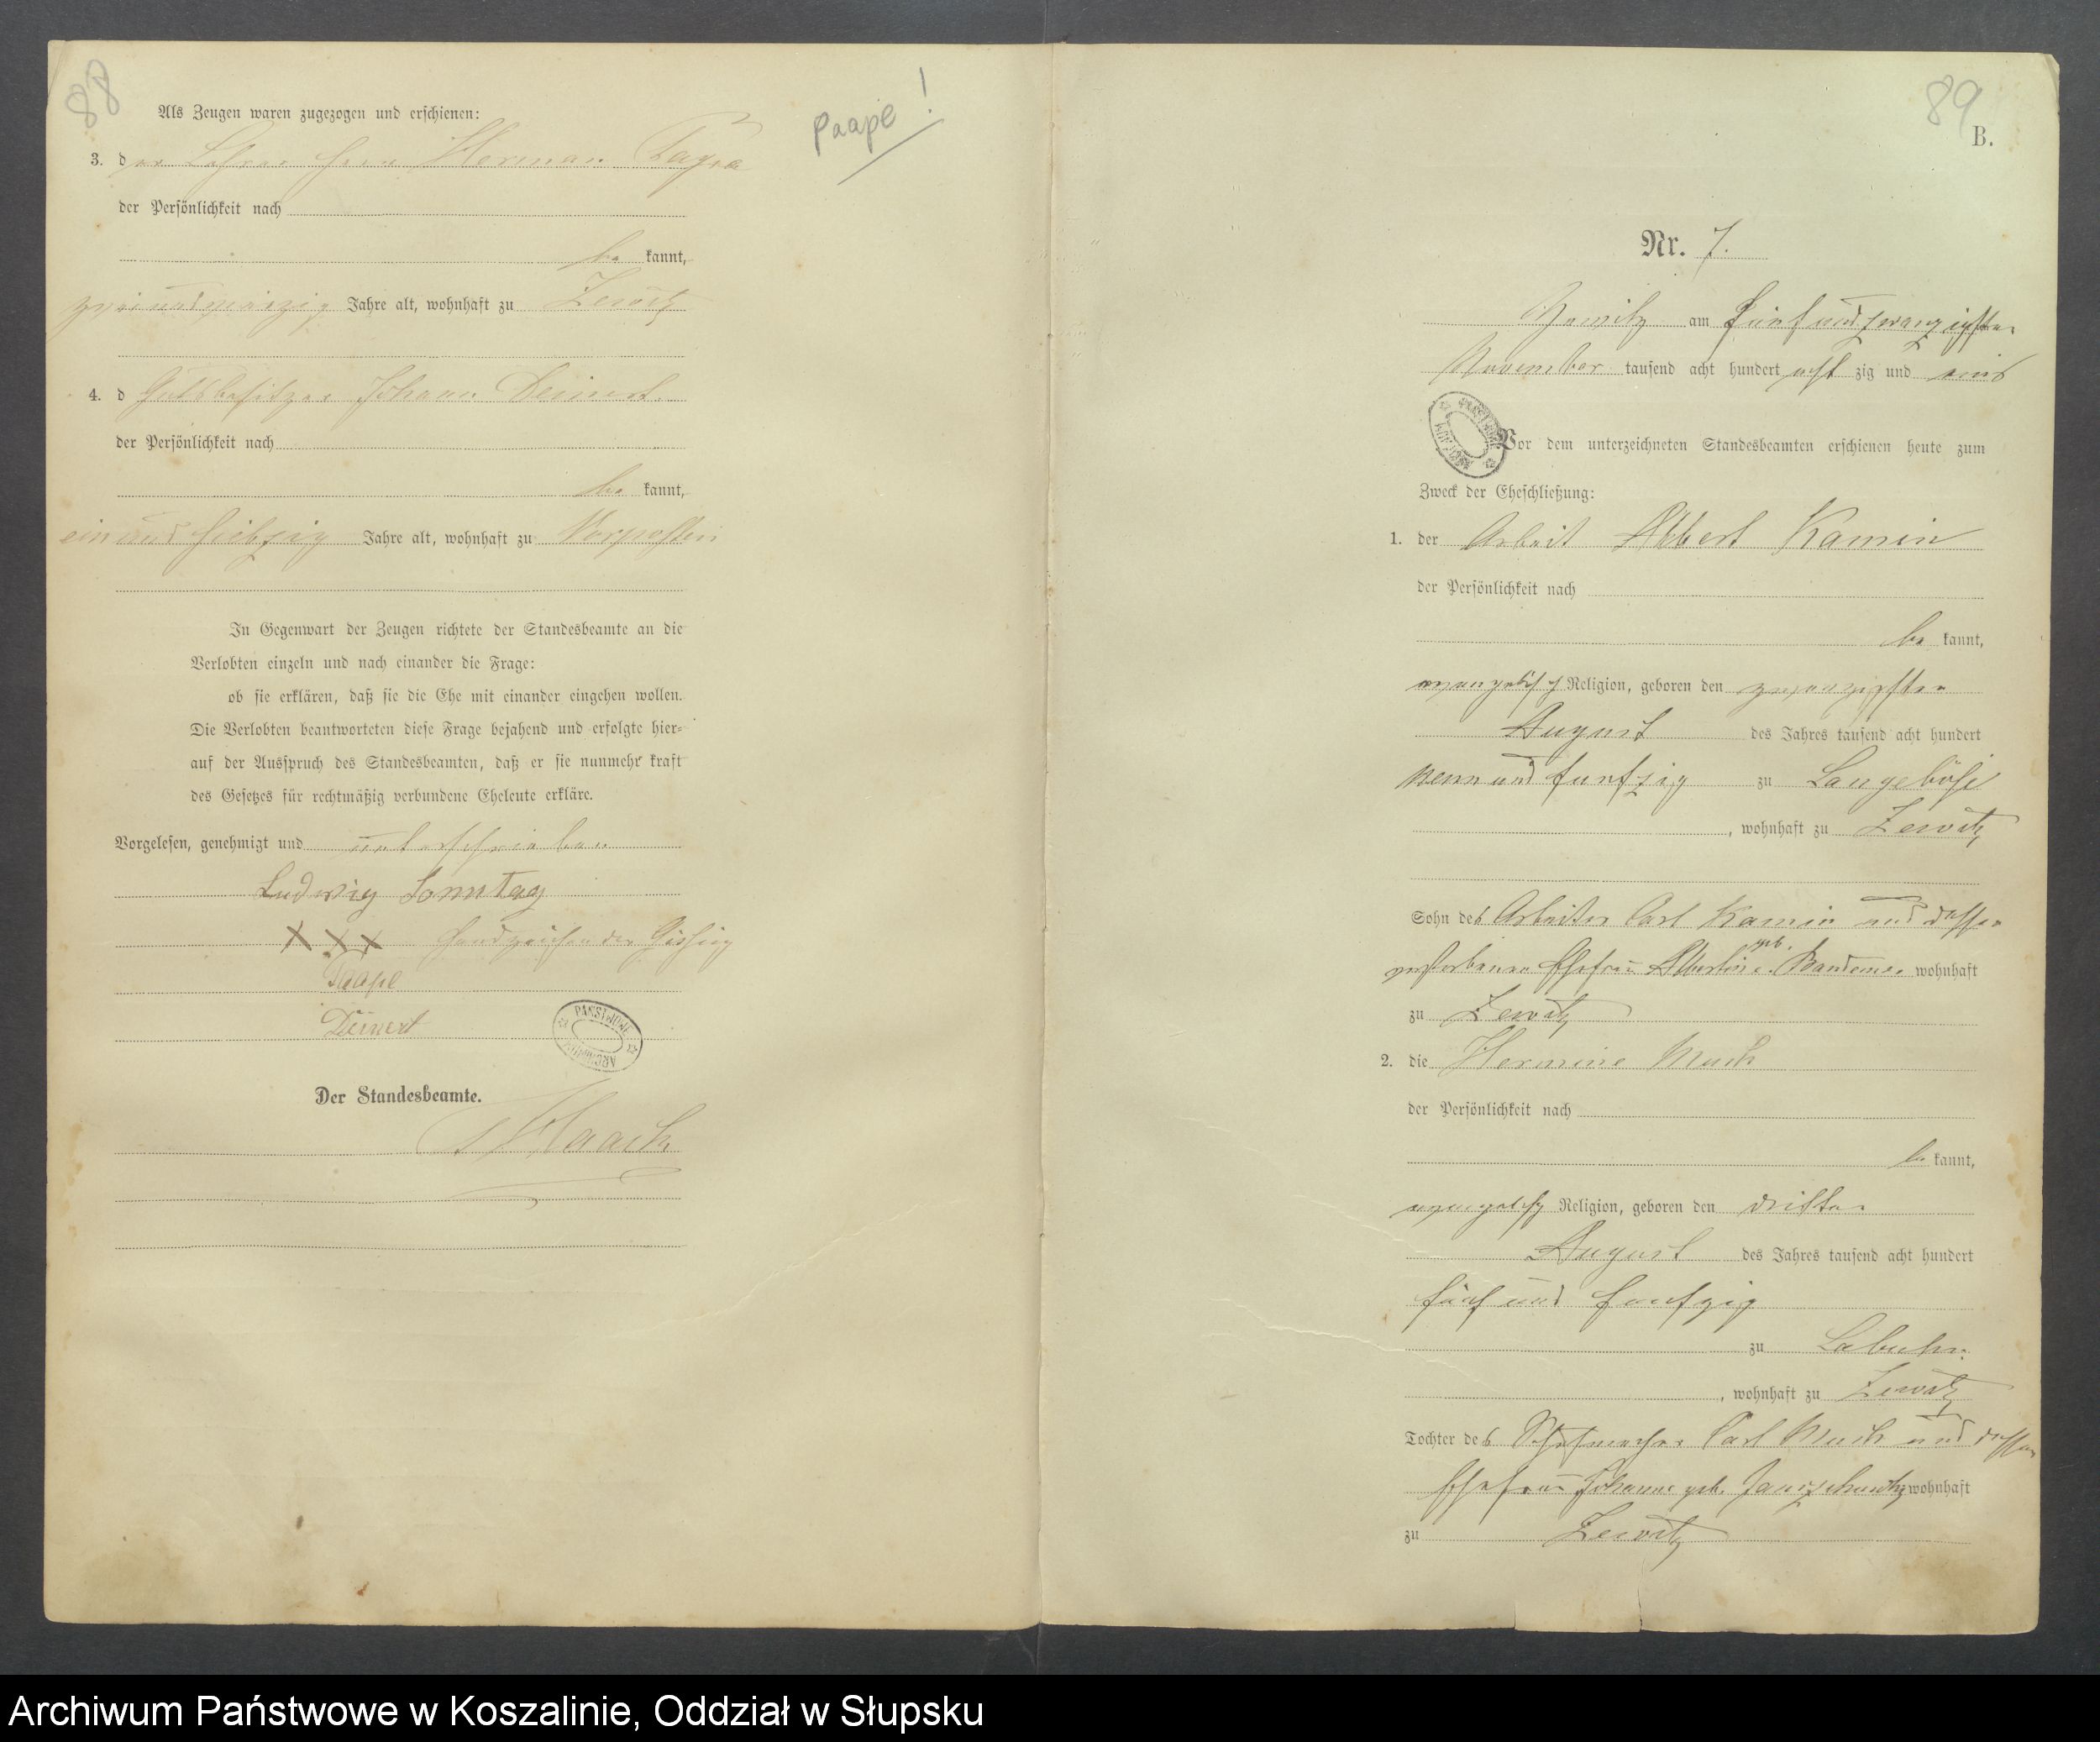 88
Als Zeugen waren zugezogen und erschienen:
paape!
3. der Lehrer Herr Herman
der Persönlichkeit nach
be kannt,
zweiundzwanzig Jahre alt, wohnhaft zu Zewitz
4. d Gutsbesitzer Johann Deinert
der Persönlichkeit nach
be kannt,
ein und siebzig Jahre alt, wohnhaft zu Vorposten
In Gegenwart der Zeugen richtete der Standesbeamte an die
Verlobten einzeln und nach einander die Frage:
ob sie erklären, daß sie die Ehe mit einander eingehen wollen.
Die Verlobten beantworteten diese Frage bejahend und erfolgte hier=
auf der Ausspruch des Standesbeamten, daß er sie nunmehr kraft
des Gesetzes für rechtmäßig verbundene Eheleute erkläre.
Vorgelesen, genehmigt und unterschrieben
Ludwig Sonntag
XXX Handzeichen der
Paape
Deinert
PAŃSTWOWE ARCHIWUM
Der Standesbeamte.
Haack
89
B.
Nr. 7.
am Fünf und zwanzigsten
November tausend acht hundert acht zig und eins
PAŃSTWOWE ARCHIWUM
Vor dem unterzeichneten Standesbeamten erschienen heute zum
Zweck der Eheschließung:
1. der Arbeit Albert Kamin
der Persönlichkeit nach
be kannt,
evangelisch Religion, geboren den zwanzigsten
August des Jahres tausend acht hundert
neun und funfzig zu Langeböse
, wohnhaft zu Zewitz
Sohn des Arbeiter Carl Kamin und dessen
verstorbenen Ehefrau Albertine geb. wohnhaft
zu Zewitz
2. die Hermine Much
der Persönlichkeit nach
be kannt,
evangelisch Religion, geboren den dritten
August des Jahres tausend acht hundert
fünf und funfzig
zu Labuhn
, wohnhaft zu Zewitz
Tochter des Carl Much und dessen
Ehefrau Johanne geb. wohnhaft
zu Zewitz
Archiwum Państwowe w Koszalinie, Oddział w Słupsku